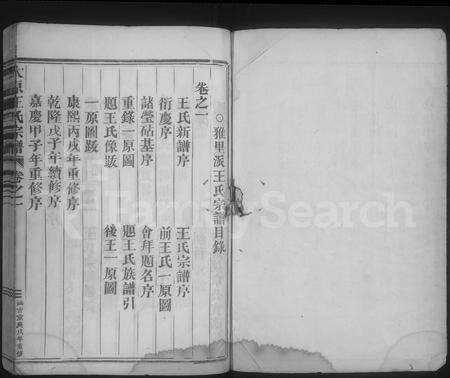 ○雅里派王氏宗譜目錄
卷之一
王氏新譜序 王氏宗譜序
衍慶序 前王氏一原圖
諸塋砧基序 會拜題名序
重錄一原圖 題王氏族譜引
題王氏像跋 後王一原圖
一原圖跋
康熙丙戌年重修序
乾隆戊子年續修序
嘉慶甲子年重修序
太原王氏宗譜 卷之一
FamilySearch